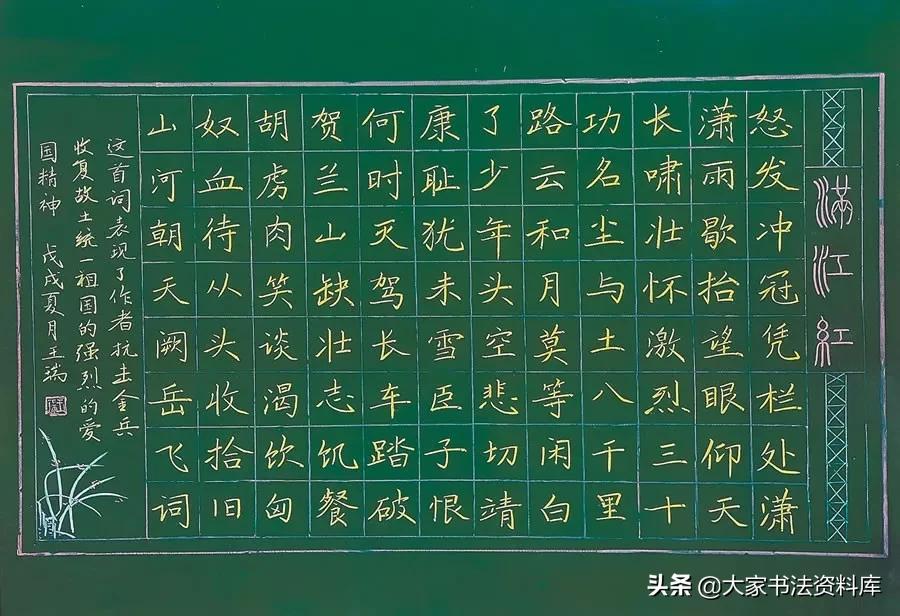 满江紅
怒发冲冠凭栏处潇
潇雨歇抬望眼仰天
长啸壮怀激烈三十
功名尘与土八千里
路云和月莫等闲白
了少年头空悲切靖
康耻犹未雪臣子恨
何时灭驾长车踏破
贺兰山缺壮志饥餐
胡虏肉笑谈渴饮匈
奴血待从头收拾旧
山河朝天阙岳飞词
这首词表现了作者抗击金兵
收复故土统一祖国的强烈的爱
国精神 戊戌夏月王瑞
头条 @大家书法资料库